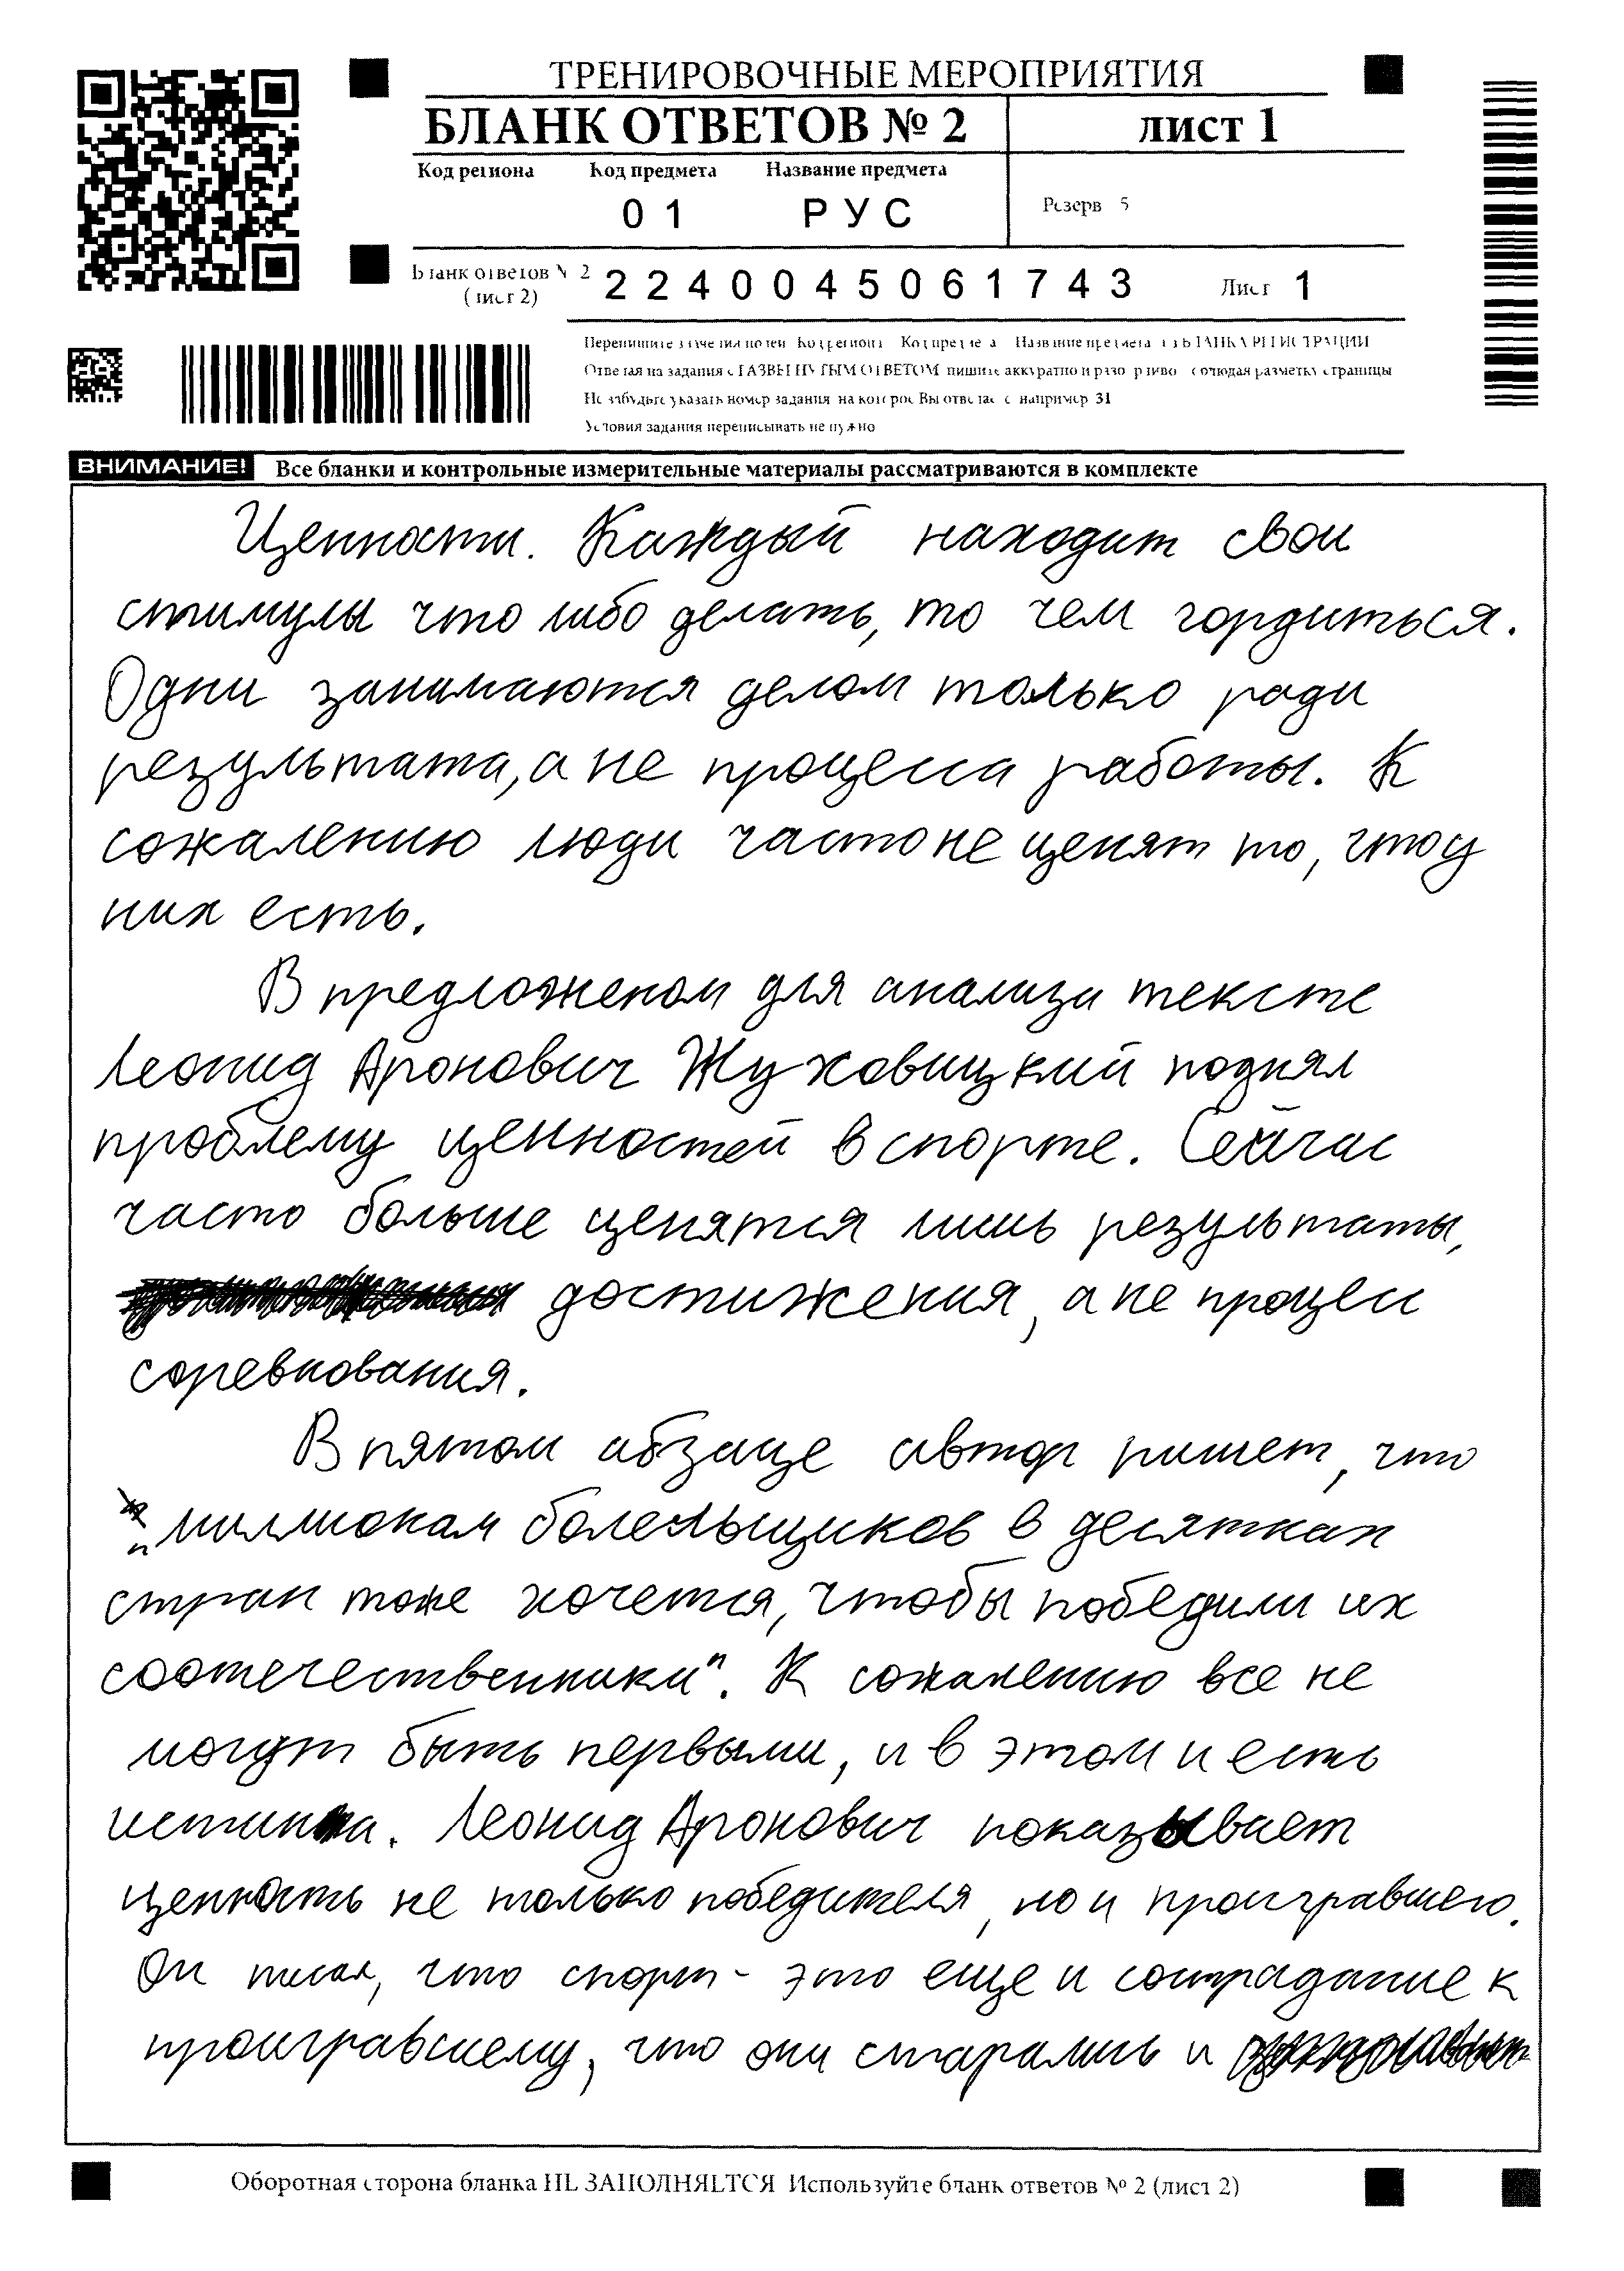 ТРЕНИРОВОЧНЫЕ МЕРОПРИЯТИЯ
БЛАНК ОТВЕТОВ № 2
ЛИСТ 1
Код региона Код предмета Название предмета
01 РУС
Резерв 5
Бланк ответов № 2
(лист 2)
2240045061743
Лист 1
Перепишите значения полей Код региона Код предмета Название предмета из БЛАНКА РЕГИСТРАЦИИ
Отвечая на задания с РАЗВЕРНУТЫМ ОТВЕТОМ пишите аккуратно и разборчиво соблюдая разметку страницы
Не забудьте указать номер задания на который Вы отвечаете например 31
Условия задания переписывать не нужно
ВНИМАНИЕ! Все бланки и контрольные измерительные материалы рассматриваются в комплекте
Ценности. Каждый находит свои
стимулы что либо делать, то чем гордиться.
Одни занимаются делом только ради
результата, а не процесса работы. К
сожалению люди часто не ценят то, что у
них есть.
В предложеном для анализа тексте
Леонид Аронович Жуховицкий поднял
проблему ценностей в спорте. Сейчас
часто больше ценятся лишь результаты,
достижения, а не процесс
соревнования.
В пятом абзаце автор пишет, что
„миллионам болельщиков в десятках
стран тоже хочется, чтобы победили их
соотечественники". К сожалению все не
могут быть первыми, и в этом и есть
истина. Леонид Аронович показывает
ценность не только победителя, но и проигравшего.
Он писал, что спорт - это еще и сострадание к
проигравшему, что они старались и
Оборотная сторона бланка НЕ ЗАПОЛНЯЕТСЯ Используйте бланк ответов № 2 (лист 2)